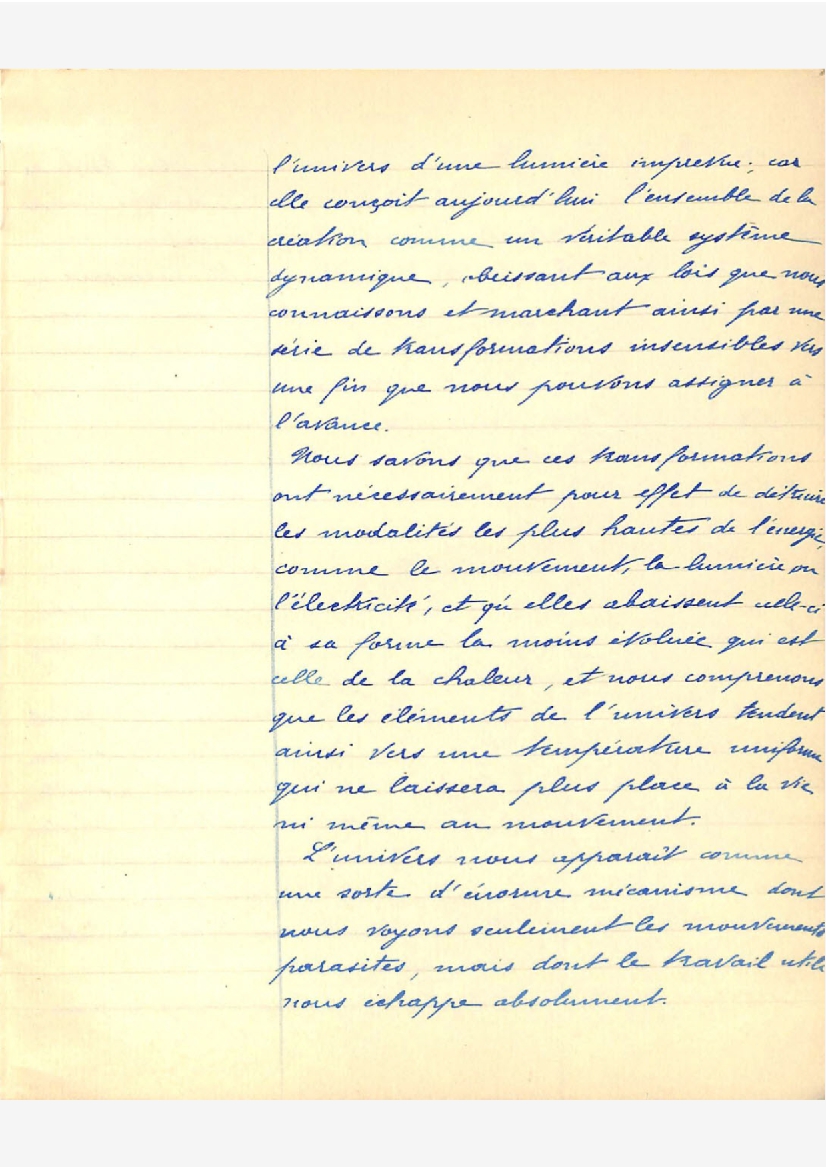 l'univers d'une lumière imprévue ; car
elle conçoit aujourd'hui l'ensemble de la
création comme un véritable système
dynamique, obéissant aux lois que nous
connaissons et marchant ainsi par une
série de transformations insensibles vers
une fin que nous pouvons assigner à
l'avance.
Nous savons que ces transformations
ont nécessairement pour effet de détruire
les modalités les plus hautes de l'énergie,
comme le mouvement, la lumière ou
l'électricité, et qu'elles abaissent celle-ci
à sa forme la moins évoluée qui est
celle de la chaleur, et nous comprenons
que les éléments de l'univers tendent
ainsi vers une température uniforme
qui ne laissera plus place à la vie
ni même au mouvement.
L'univers nous apparaît comme
une sorte d'énorme mécanisme dont
nous voyons seulement les mouvements
parasites, mais dont le travail utile
nous échappe absolument.